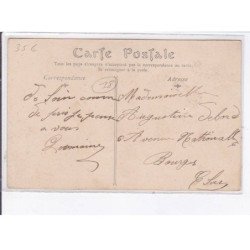 35 €
Carte Postale
Tous les pays étrangers n'acceptent pas la correspondance au recto,
se renseigner à la poste.
Correspondance
Adresse
De loin comme
de près je pense
à vous
Mademoiselle
Augustine
Avenue Nationale
Bourges
Cher